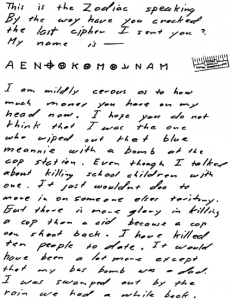 This is the Zodiac speaking
By the way have you cracked
the last cipher I sent you ?
My name is —
A E N ⊕ K M N A M
I am mildly cerous as to how
much money you have on my
head now. I hope you do not
think that I was the one
who wiped out that blue
meannie with a bomb at the
cop station. Even though I talked
about killing school children with
one. It just wouldnt doo to
move in on someone elses teritory.
But there is more glory in killing
a cop than a cid because a cop
can shoot back. I have killed
ten people to date. It would
have been a lot more except
that my bus bomb was a dud.
I was swamped out by the
rain we had a while back.